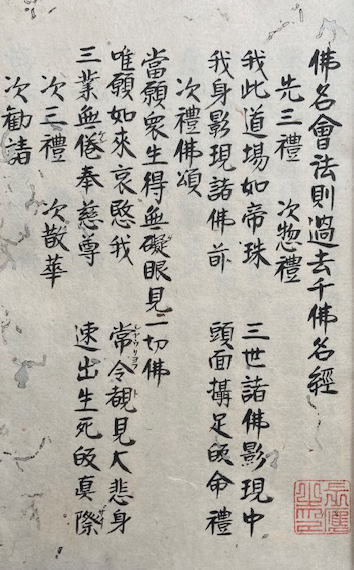 佛名會法則過去千佛名經
先三禮　次惣禮
我此道場如帝珠　三世諸佛影現中
我身影現諸佛前　頭面攝足皈命禮
次禮佛頌
當願衆生得無礙眼見一切佛
唯願如來哀愍我　常令覩見大悲身
三業無倦奉慈尊　速出生死皈眞際
次三禮　次散華
次勸請